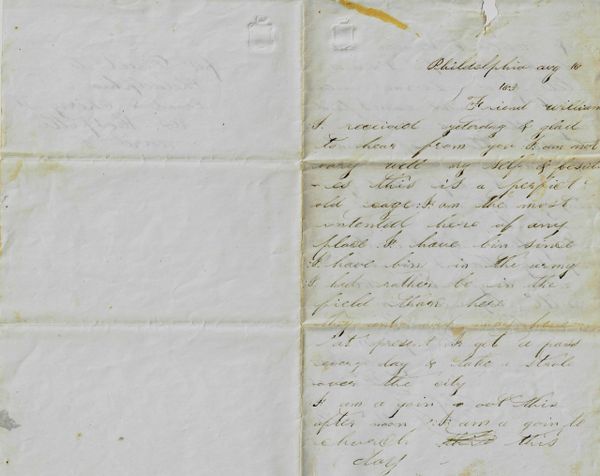 Philidelphia aug 16
Friend william
I received yesterday & glad
to hear from you I am not
very well my self & besid
es this is a perfict
old cage I am the most
contented here of any
place I have bin since
I have bin in the army
I had rather be in the
field than here
at present I get a pass
every day & take a strole
over the city
I am a goin out this
after noon I am a goin to
church this
day